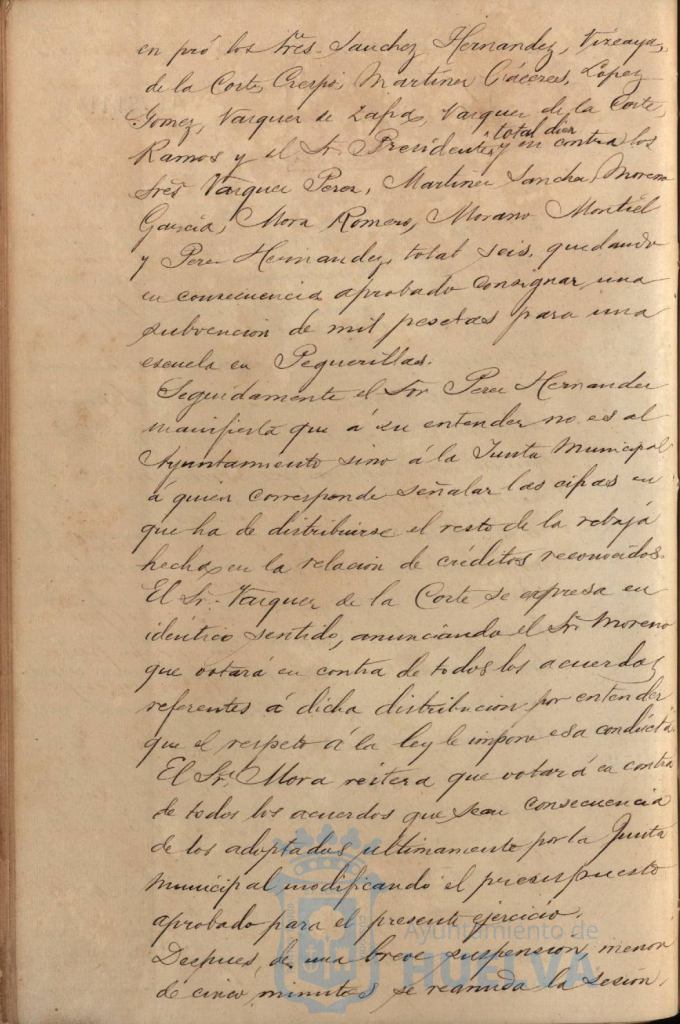 en pró los Sres. Sanchez Hernandez, Vizcaya,
de la Corte, Crespo, Martinez Cáceres, López
Gomez, Vazquez de Zafra, Vazquez de la Corte,
Ramos y el Sr. Presidente, total diez y en contra los
Srēs Vazquez Perez, Martinez Sanchez, Moreno
García, Mora Romero, Morano Montiel
y Perez Hernandez, total seis, quedando
en consecuencia aprobado consignar una
subvencion de mil pesetas para una
escuela en Peguerillas.
Seguidamente el Sor Perez Hernandez
manifiesta que á su entender no es al
Ayuntamiento sino á la Junta Municipal
á quien corresponde señalar las cifras en
que ha de distribuirse el resto de la rebaja
hecha en la relacion de créditos reconocidos.
El Sr. Vazquez de la Corte se expresa en
idéntico sentido, anunciando el Sr. Moreno
que votará en contra de todos los acuerdos
referentes á dicha distribucion por entender
que el respeto á la ley le impone esa conducta.
El Sr. Mora reitera que votará en contra
de todos los acuerdos que sean consecuencia
de los adoptados ultimamente por la Junta
Municipal modificando el presupuesto
aprobado para el presente ejercicio.
Despues de una breve suspension, menor
de cinco minutos se reanuda la sesión,
Ayuntamiento de
HUELVA